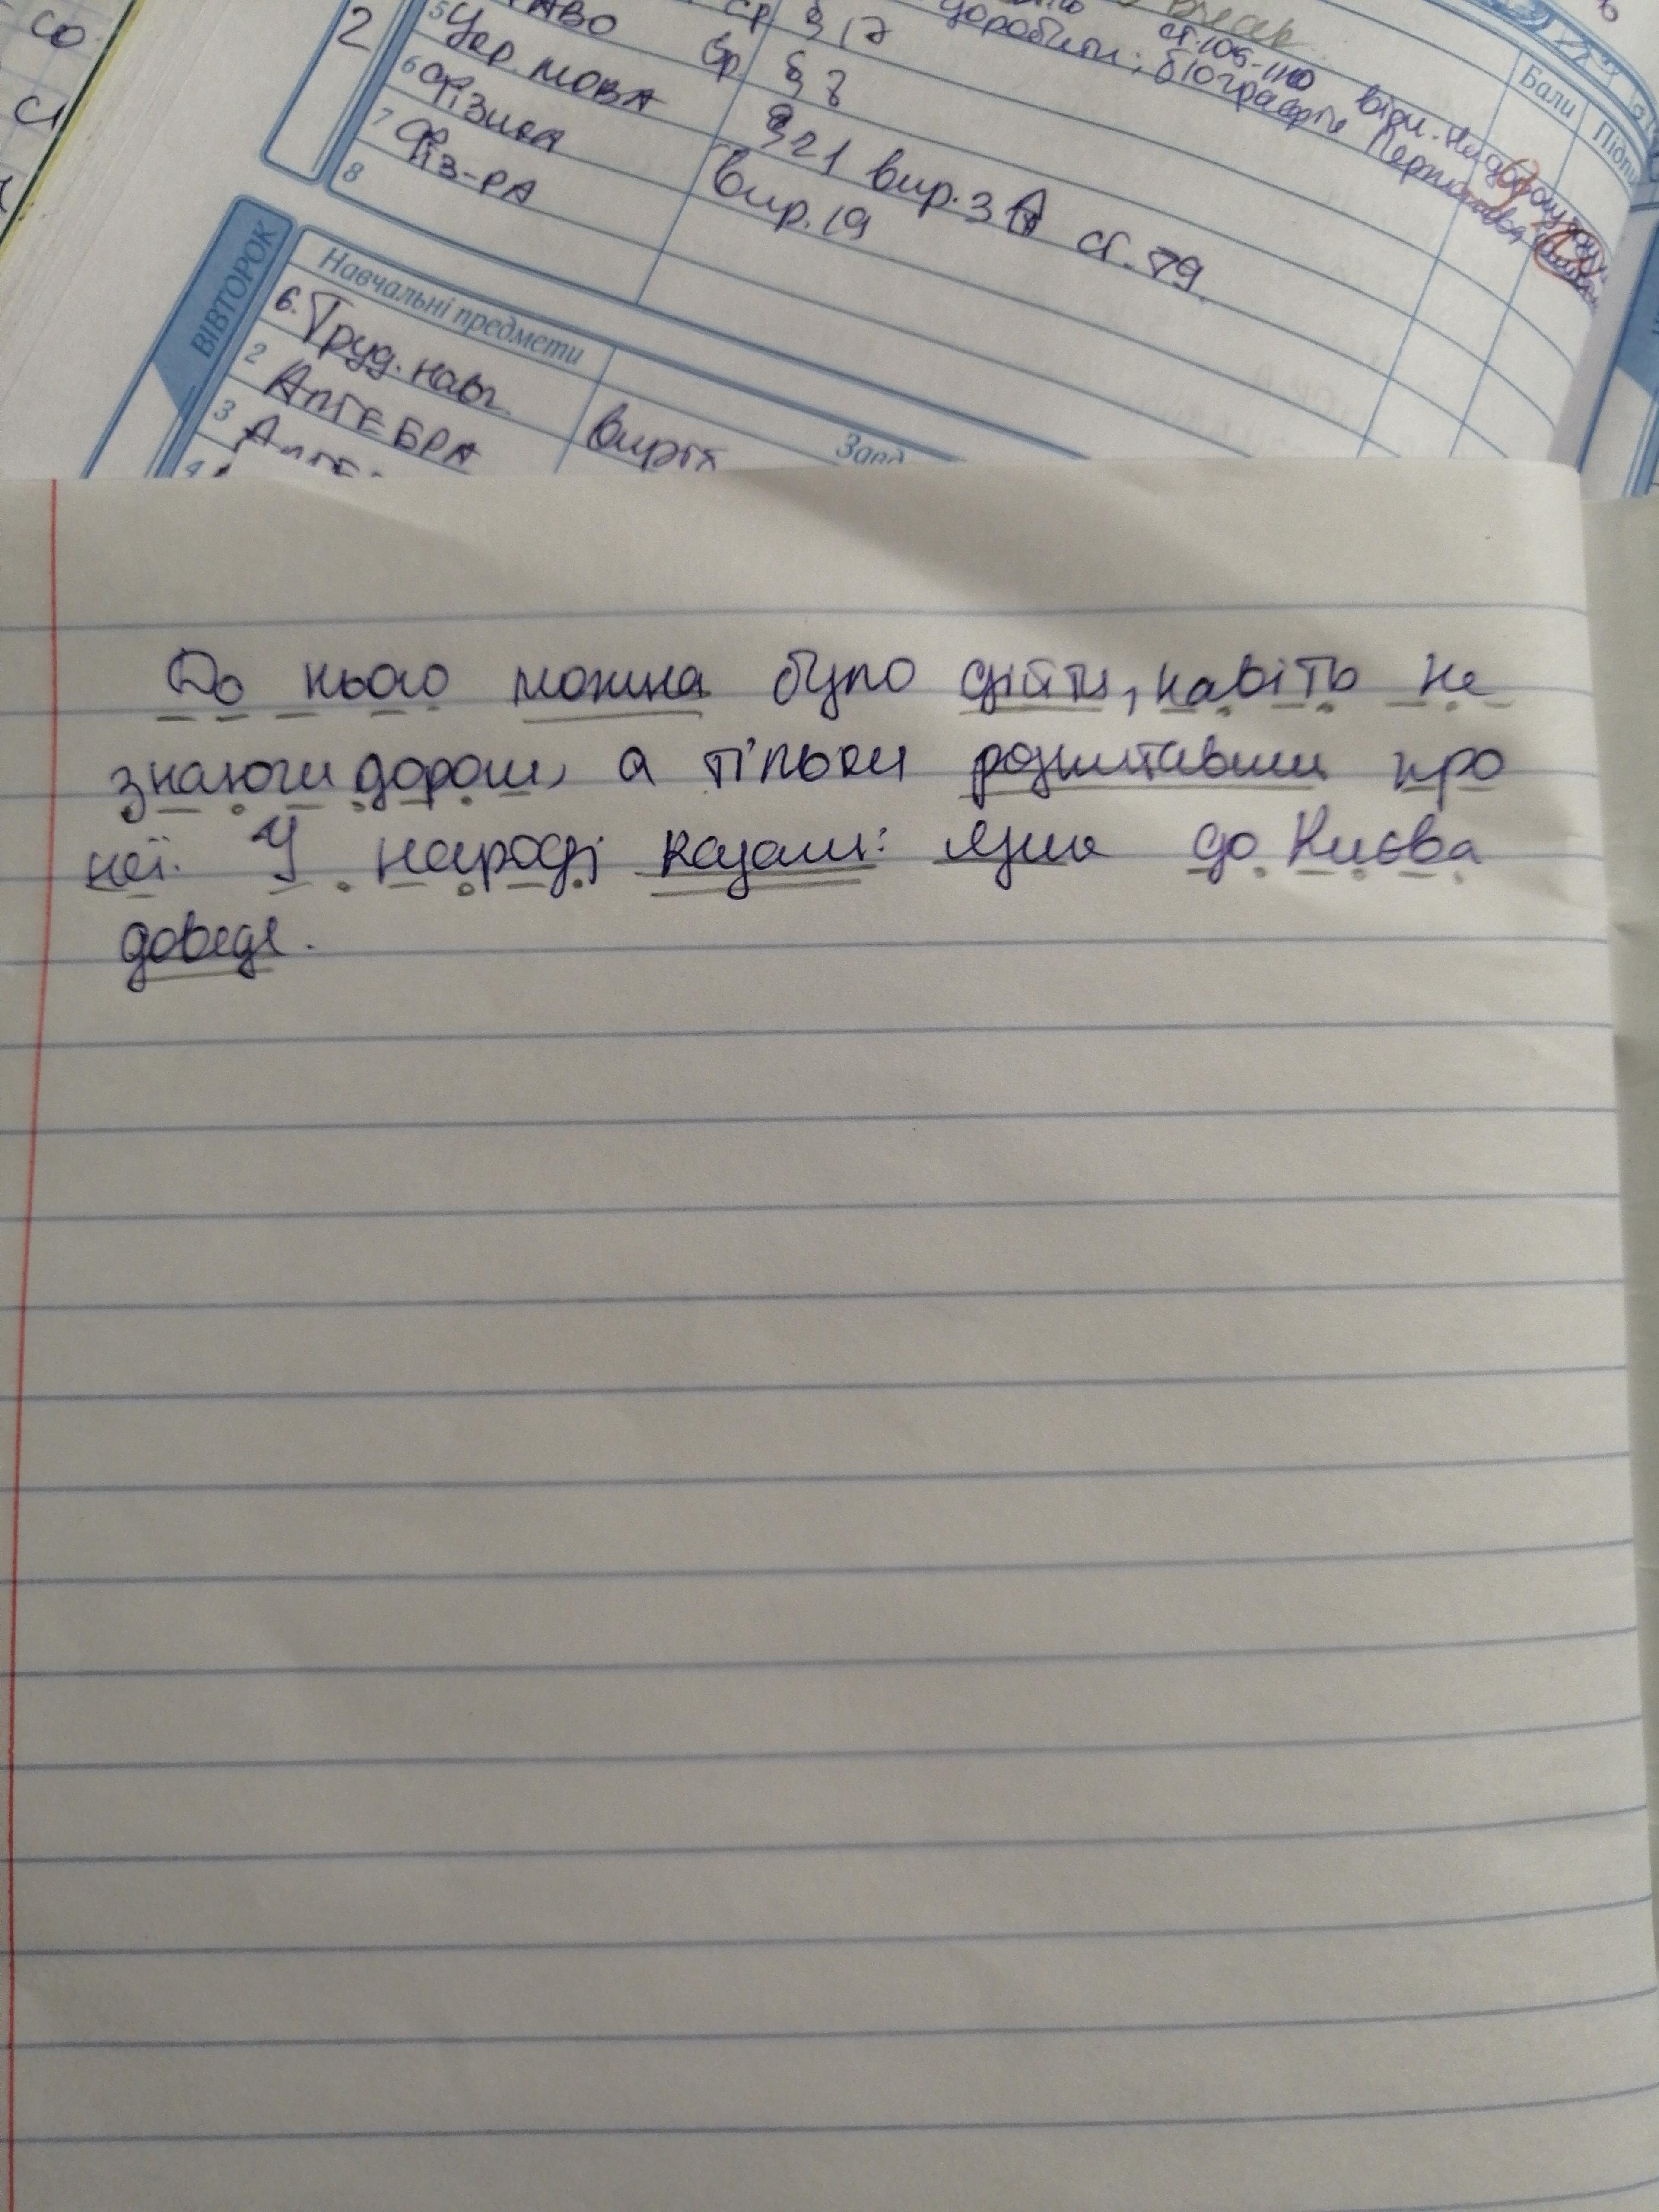 со
сі
2
5 АВО ср § 17
Укр. мова ср § 8
6 Фізика §21 вир. 3 А ст. 79
7 Фіз-РА вир. 19
8
доробити; біографія
ст. 105-110
Бали
ВІВТОРОК
Навчальні предмети
Завд
6. Труд. навч.
2 АлГЕБРА виріх
3
4
До нього можна було дійти, навіть не
знаючи дороги, а тільки розпитавши про
неї. У народі казали: язик до Києва
доведе.